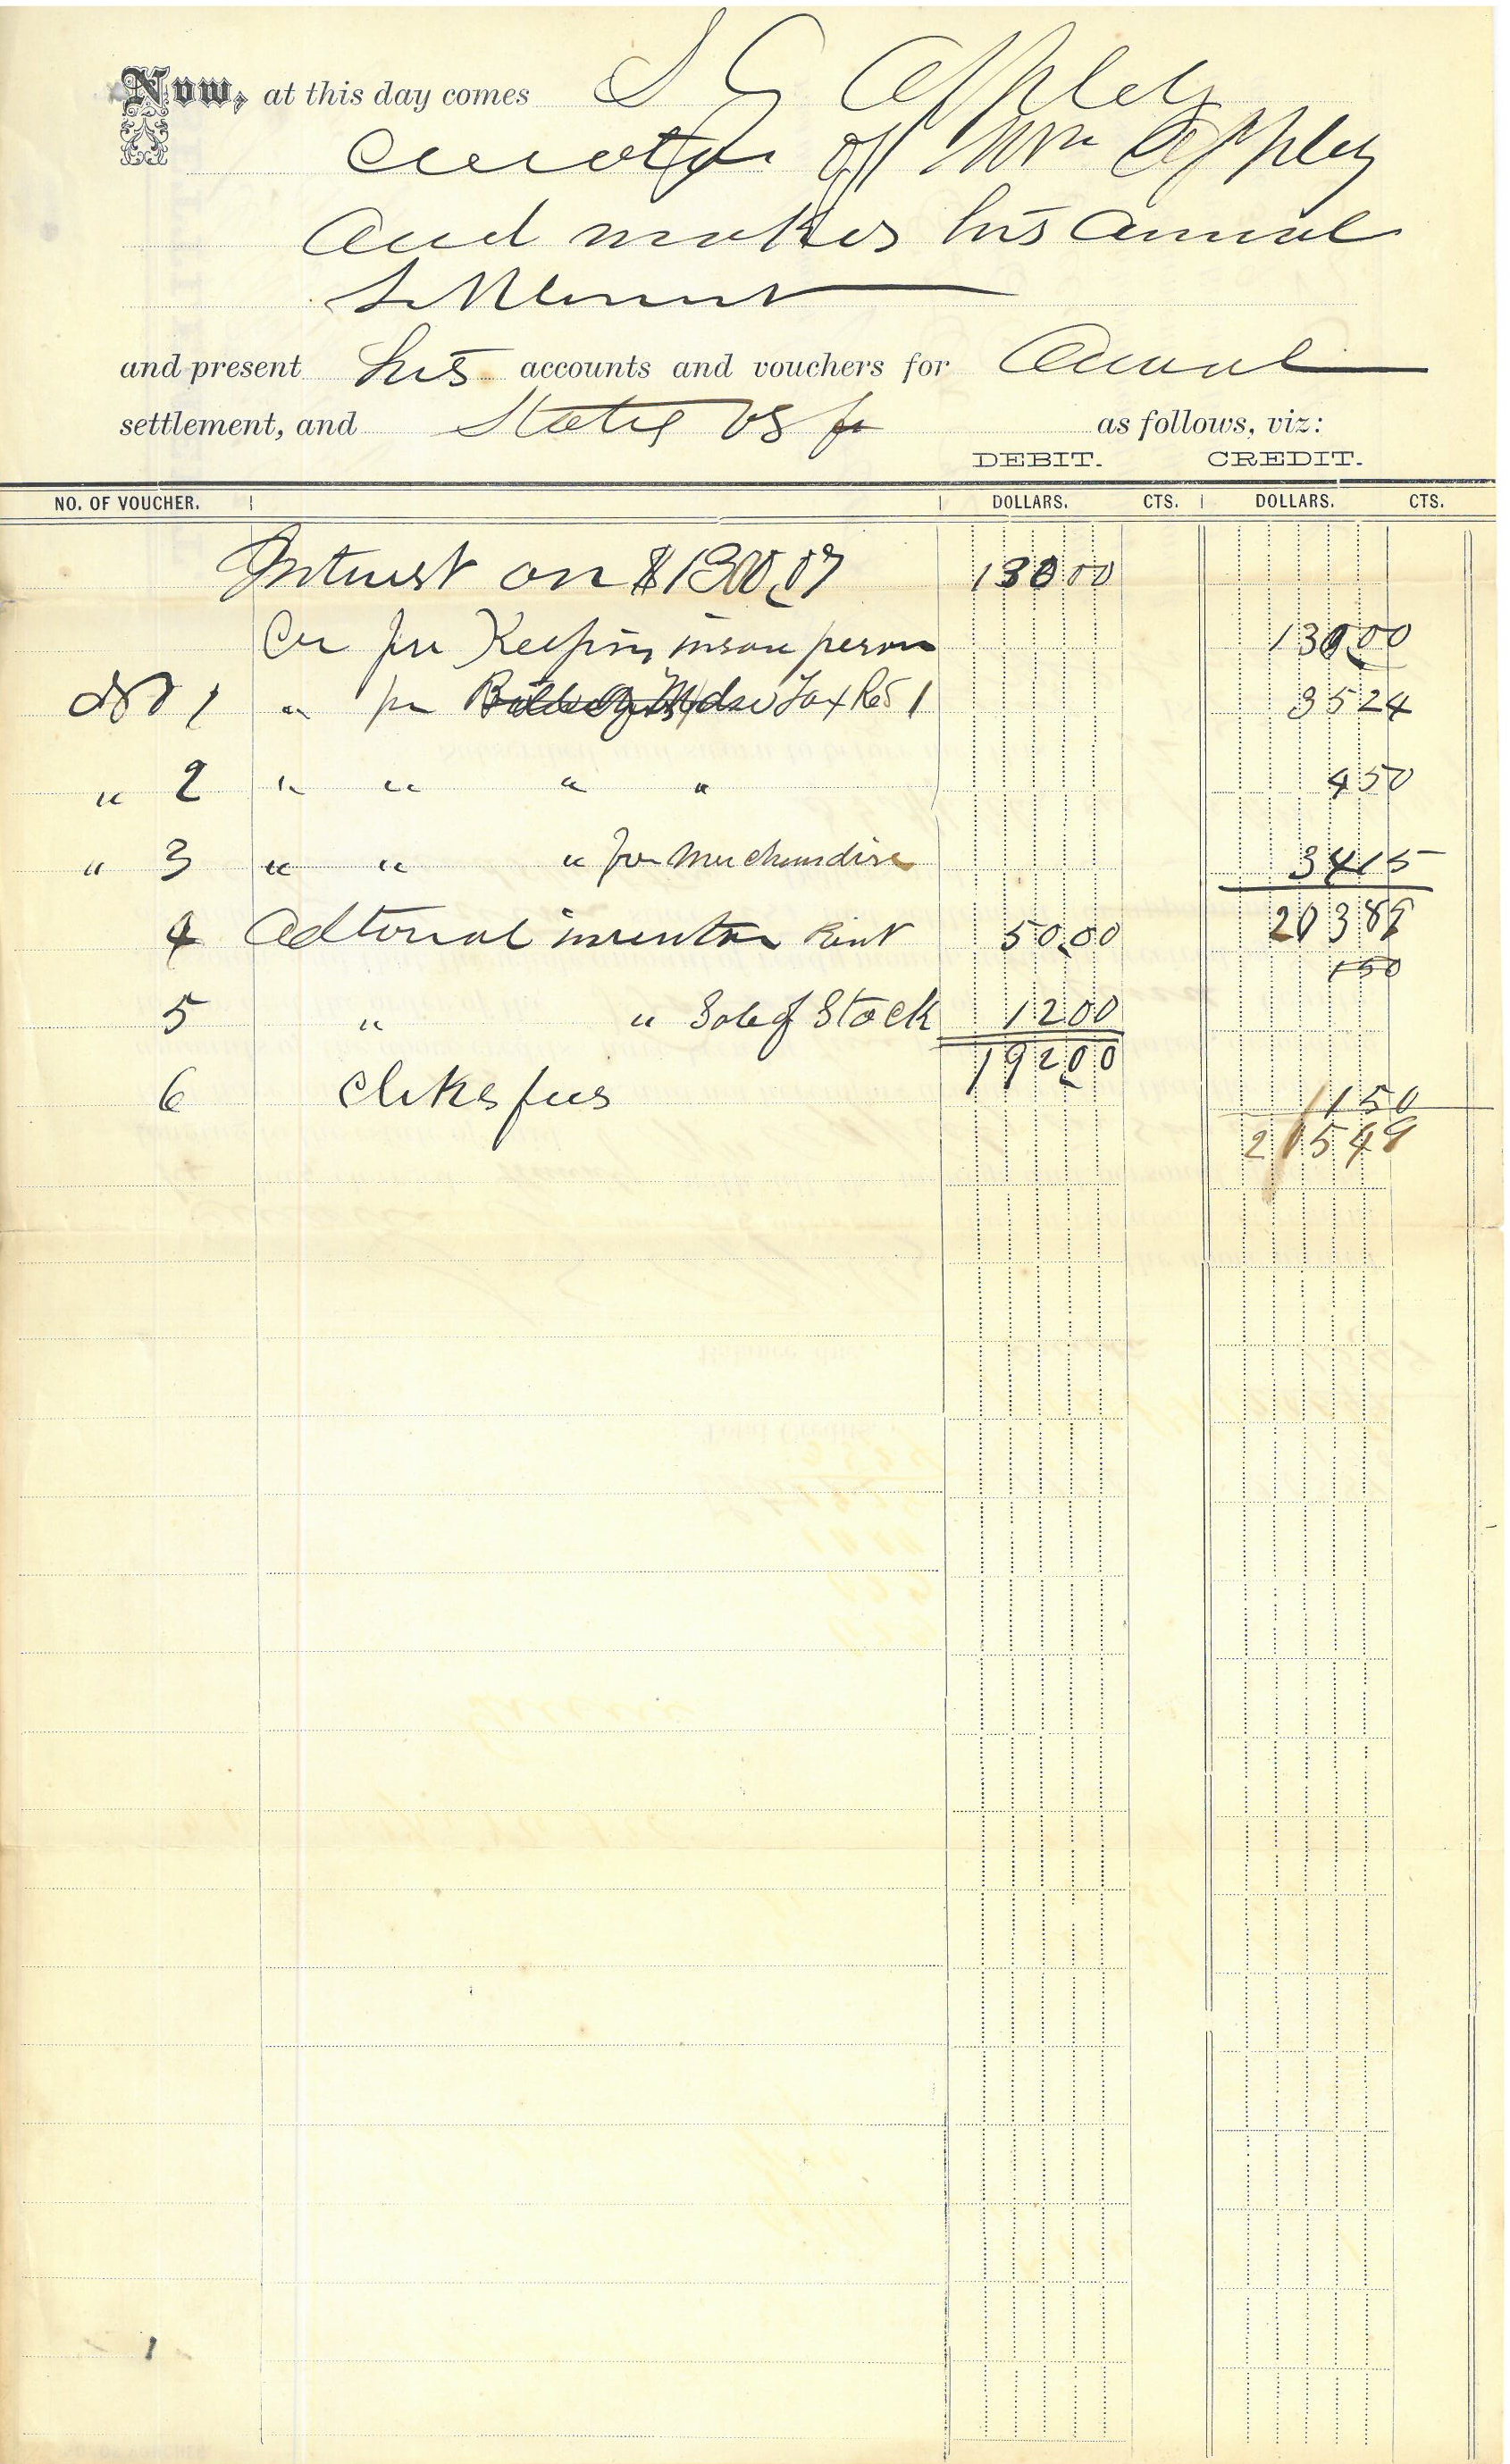 Now, at this day comes S G Appley
Curator of Wm Appley
and makes his annual
Settlement
and present his accounts and vouchers for Annual
settlement, and States as follows, viz:
DEBIT. CREDIT.
NO. OF VOUCHER. DOLLARS. CTS. DOLLARS. CTS.
Interest on $1300.07 130 00
Cr for Keeping insane person 130.00
No 1 " for Tax Rec 1 35 24
" 2 " " " " 4 50
" 3 " " " for Merchandise 34 15
203 89
4 Adtional inventory Rent 50.00
1 50
5 " " Sale of Stock 12 00
192.00
6 Clerks fees 11 50
215 49
1